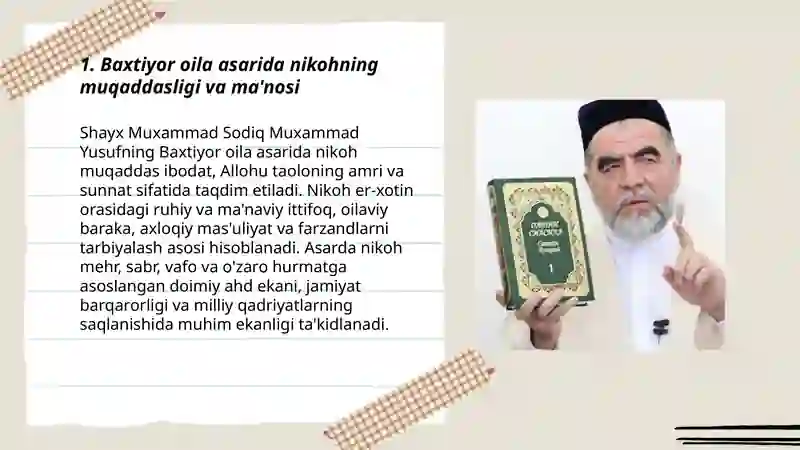 1. Baxtiyor oila asarida nikohning
muqaddasligi va ma'nosi
Shayx Muxammad Sodiq Muxammad
Yusufning Baxtiyor oila asarida nikoh
muqaddas ibodat, Allohu taoloning amri va
sunnat sifatida taqdim etiladi. Nikoh er-xotin
orasidagi ruhiy va ma'naviy ittifoq, oilaviy
baraka, axloqiy mas'uliyat va farzandlarni
tarbiyalash asosi hisoblanadi. Asarda nikoh
mehr, sabr, vafo va o'zaro hurmatga
asoslangan doimiy ahd ekani, jamiyat
barqarorligi va milliy qadriyatlarning
saqlanishida muhim ekanligi ta'kidlanadi.
1